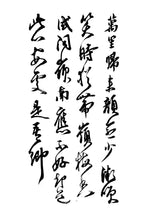 萬里歸来顏愈少微笑
笑時猶帶嶺梅香
試問嶺南應不好却道
此心安處是吾鄉